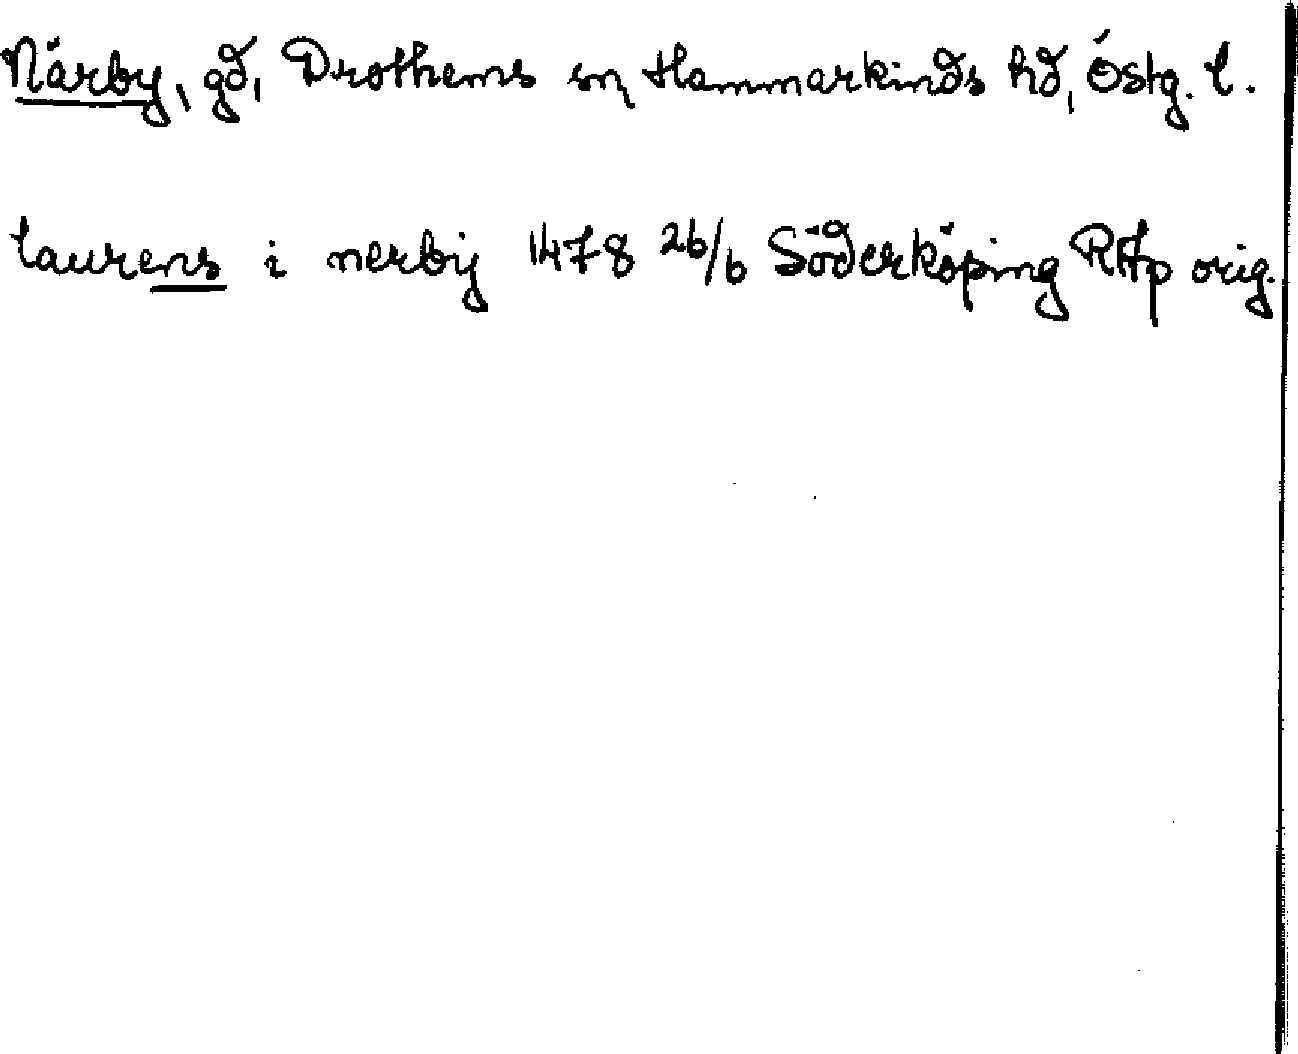 Närby, gd, Drothems sn Hammarkinds hd, Östg. l.
laurens i nerby 1478 26/6 Söderköping RAp orig.